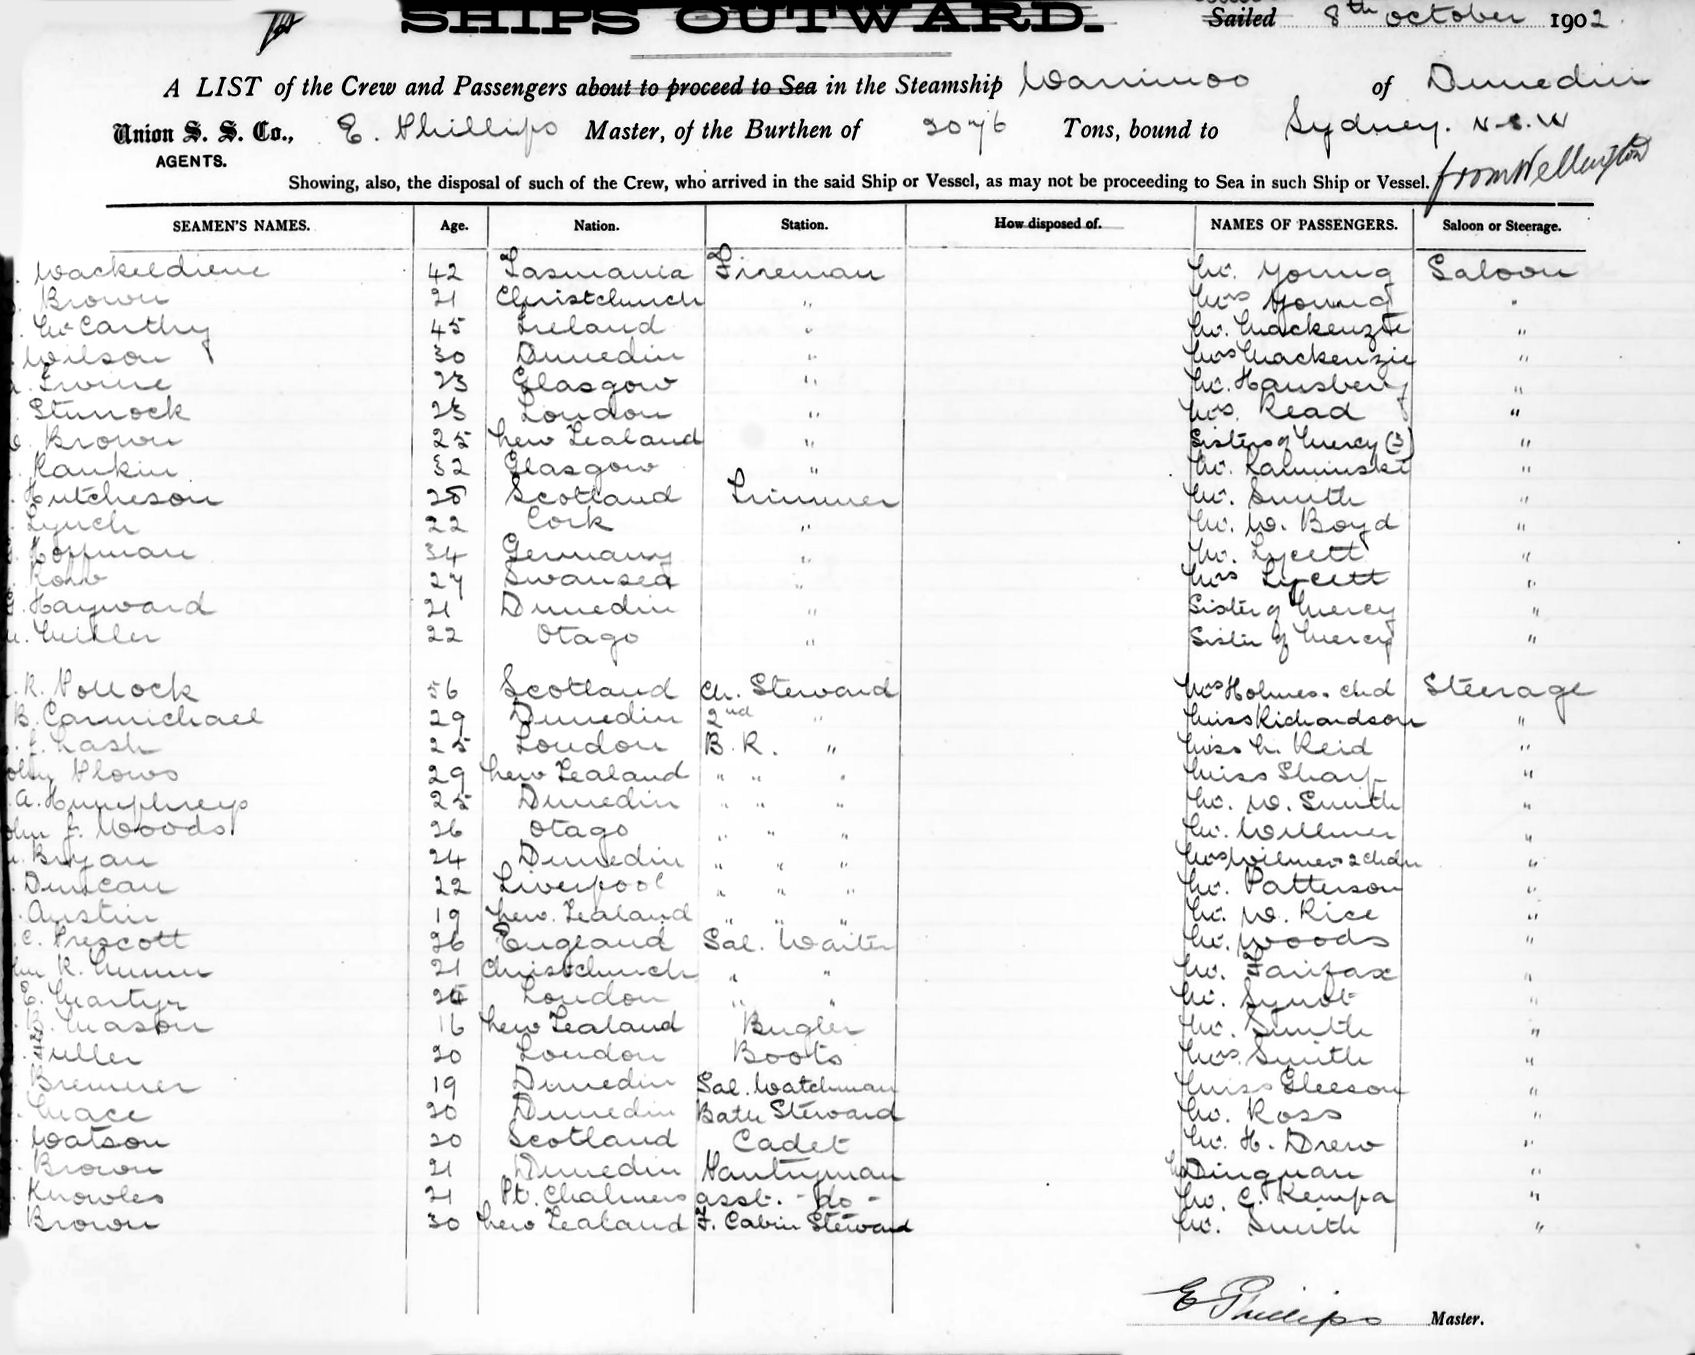 SHIPS OUTWARD.
Sailed 8th October 1902
A LIST of the Crew and Passengers about to proceed to Sea in the Steamship Warrimoo of Dunedin
Union S. S. Co., AGENTS. E. Phillips Master, of the Burthen of 2076 Tons, bound to Sydney. N.S.W
from Wellington
Showing, also, the disposal of such of the Crew, who arrived in the said Ship or Vessel, as may not be proceeding to Sea in such Ship or Vessel.
SEAMEN'S NAMES. Age. Nation. Station. How disposed of. NAMES OF PASSENGERS. Saloon or Steerage.
Wackeldiene 42 Tasmania Fireman Mr. Young Saloon
Brown 21 Christchurch " Mrs Young "
McCarthy 45 Ireland " Mr. Mackenzie "
Wilson 30 Dunedin " Mrs Mackenzie "
Irvine 23 Glasgow " Mr. Hansberg "
Sturrock 23 London " Mrs. Read "
Brown 25 New Zealand " Sisters of Mercy (3) "
Rankin 32 Glasgow " Mr. Kalminski "
Hutcheson 28 Scotland Trimmer Mr. Smith "
Lynch 22 Cork " Mr. W. Boyd "
Hoffman 34 Germany " Mr. Lycett "
27 Swansea " Mrs Lycett "
Hayward 21 Dunedin " Sister of Mercy "
Miller 22 Otago " Sister of Mercy "
R. Pollock 56 Scotland Ch. Steward Mrs Holmes. chd Steerage
B. Carmichael 29 Dunedin 2nd " Miss Richardson "
Lash 25 London B.R. " Miss M. Reid "
Plows 29 New Zealand " " " Miss Sharp "
A. Humphreys 25 Dunedin " " " Mr. W. Smith "
J. Woods 26 Otago " " " Mr. Willmer "
Bryan 24 Dunedin " " " Mrs Wilmer & 2 chdn "
Duncan 22 Liverpool " " " Mr. Patterson "
Austin 19 New Zealand " " " Mr. W. Rice "
C. Prescott 26 England Sal. Waiter Mr. Woods "
R. Munn 21 Christchurch " " Mr. Fairfax "
E. Martyr London " " Mr. Synot "
B. Mason 16 New Zealand Bugler Mr. Smith "
Fuller 20 London Boots Mrs. Smith "
Bremner 19 Dunedin Sal. Watchman Miss Gleeson "
Mace 20 Dunedin Bath Steward Mr. Ross "
Watson 20 Scotland Cadet Mr. H. Drew "
Brown 21 Dunedin Pantryman Mr Dingnan "
Knowles 21 Pt. Chalmers asst. - do - Mr. C. Kempa "
Brown 30 New Zealand F. Cabin Steward Mr. Smith "
E Phillips Master.